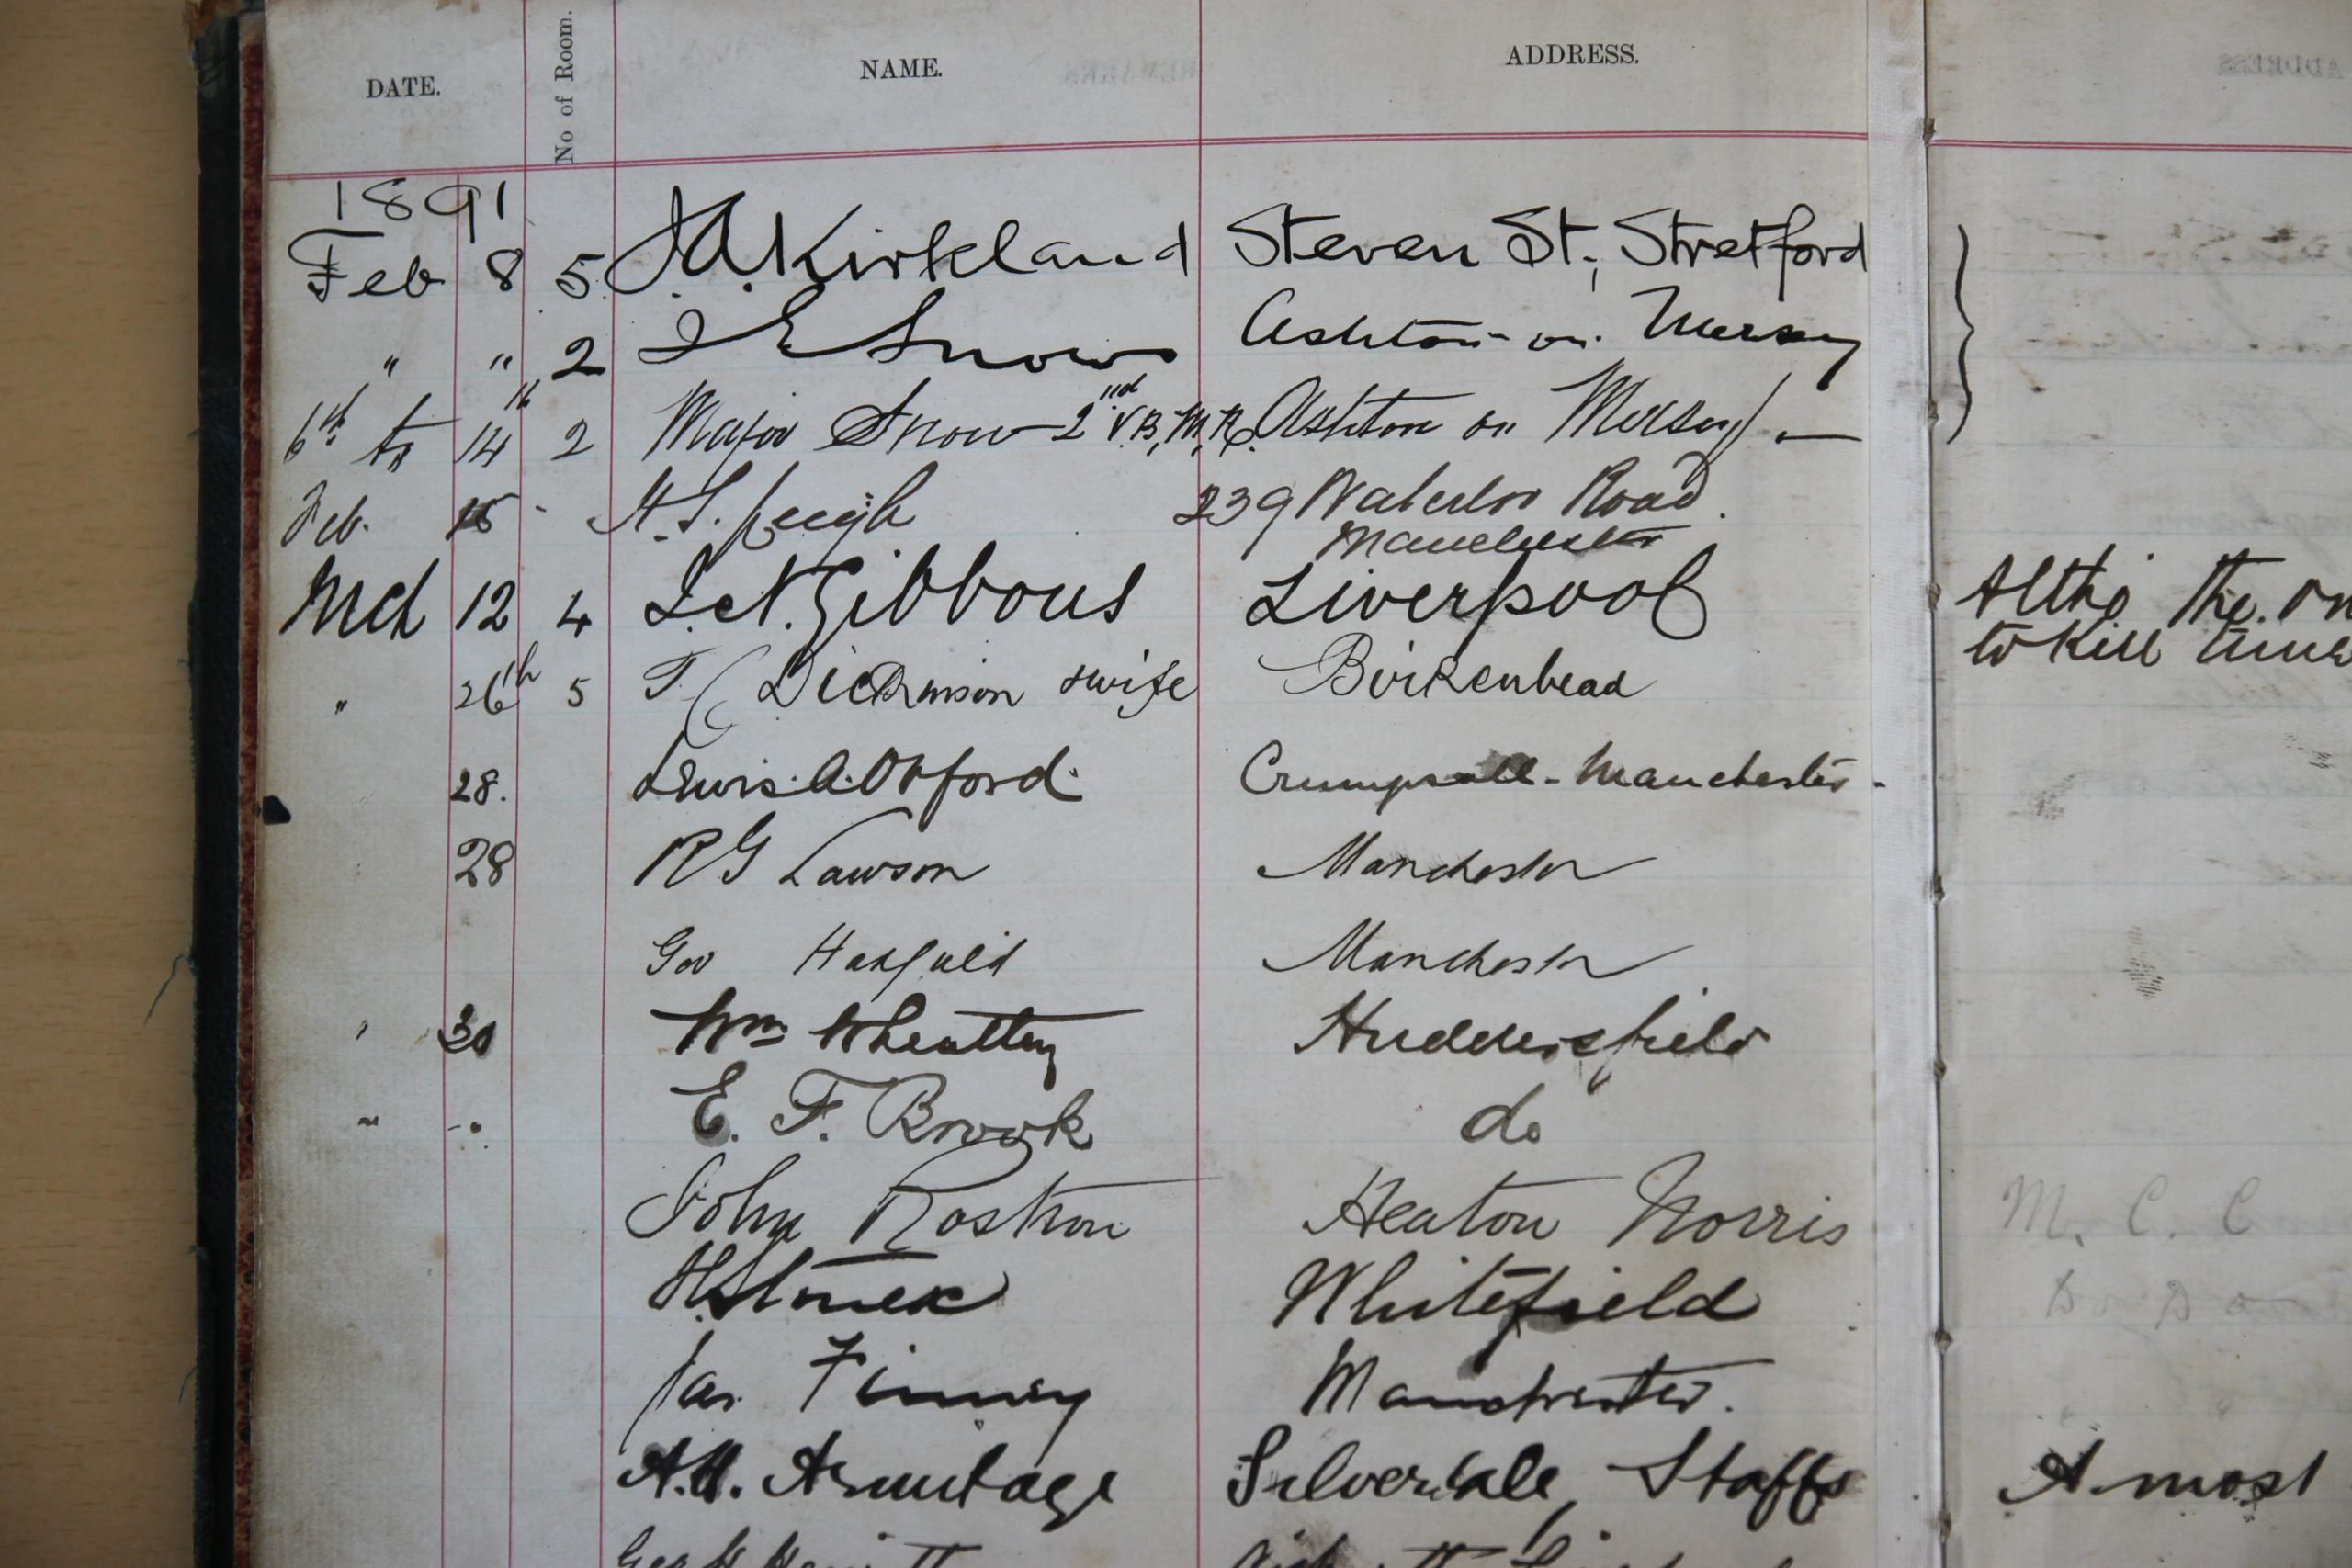 DATE. No of Room. NAME. ADDRESS.
1891
Feb 8 5 Kirkland Steven St., Stretford
" " 2 E Snow Ashton-on-Mersey
6th to 14th 2 Major Snow 2nd V.B, M, R. Ashton on Mersey
Feb. 15 - H. S. Leigh 239 Waterloo Road.
Manchester
Mch 12 4 Gibbons Liverpool
" 26th 5 T Dickinson & wife Birkenhead
28. Lewis. A. Oxford. Crumpsall - Manchester -
28 R G Lawson Manchester
Geo Hatfield Manchester
" 30 Wm Wheatley Huddersfield
" " E. F. Brook do
John Rostron Heaton Norris
Whitefield
Jas Finney Manchester.
A.H. Armitage Silverdale, Staffs
Altho' the
to kill time
M. C. C
A most